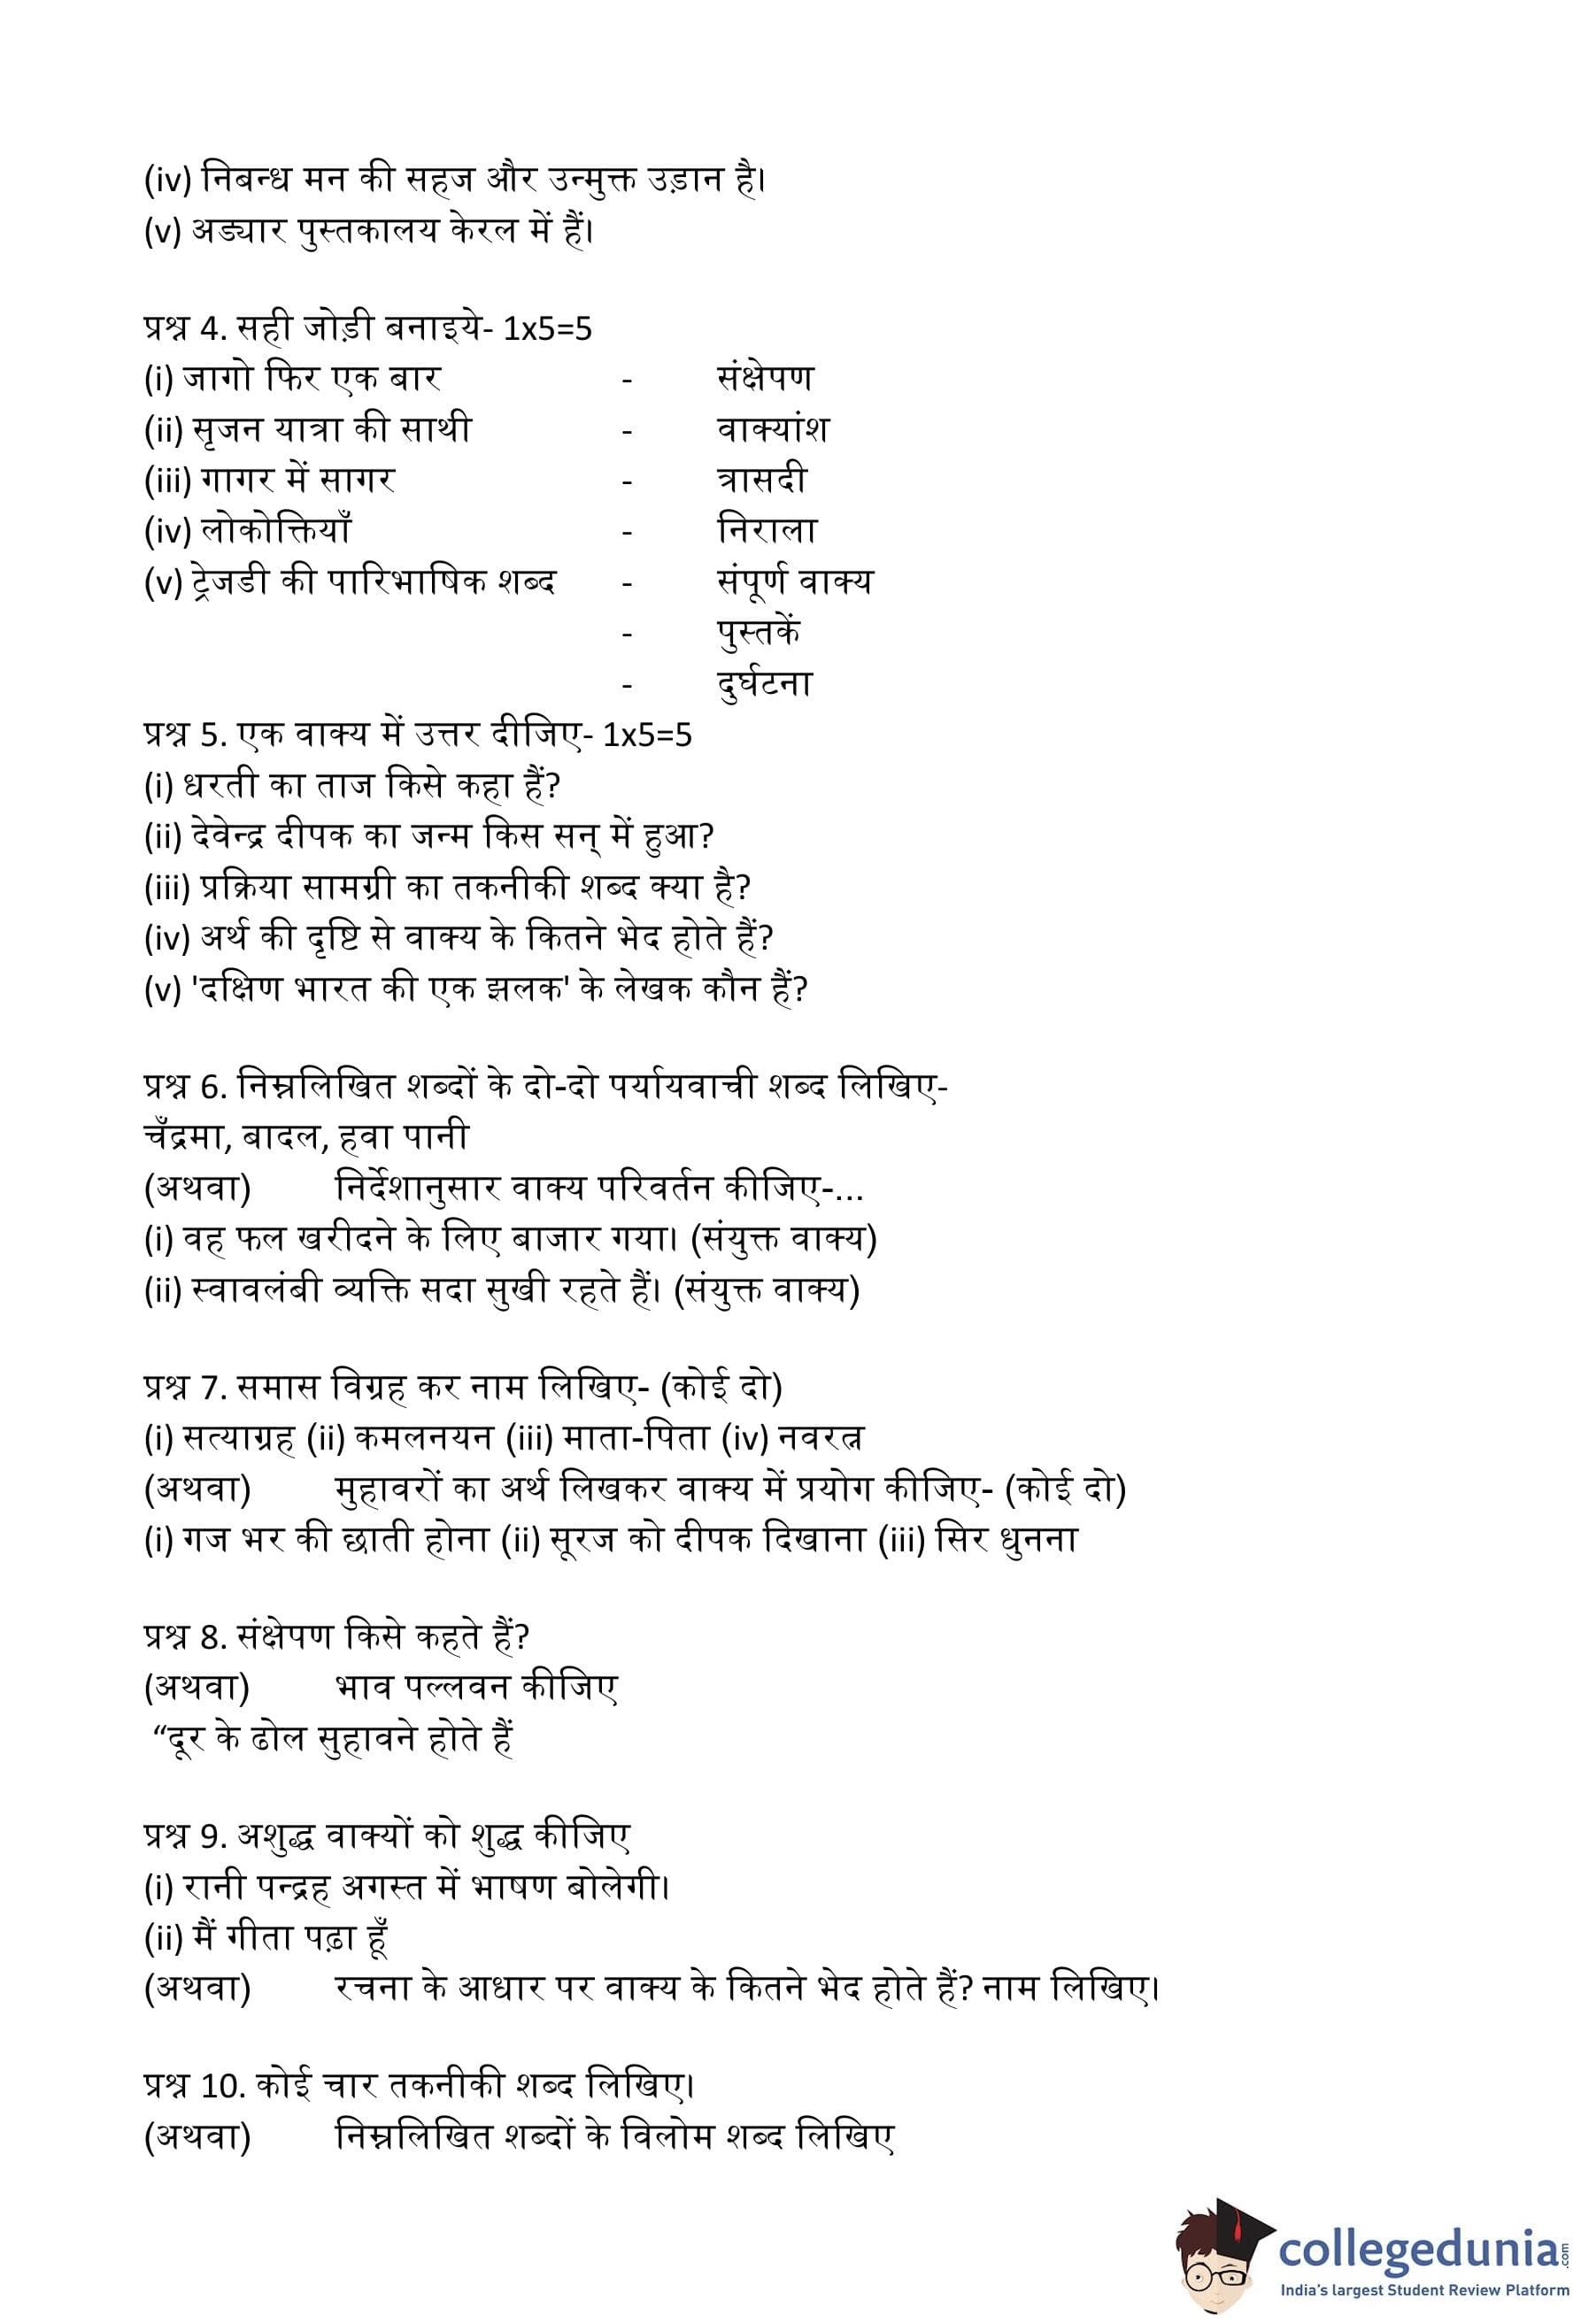 (iv) निबन्ध मन की सहज और उन्मुक्त उड़ान है।
(v) अड्यार पुस्तकालय केरल में हैं।
प्रश्न 4. सही जोड़ी बनाइये- 1x5=5
(i) जागो फिर एक बार - संक्षेपण
(ii) सृजन यात्रा की साथी - वाक्यांश
(iii) गागर में सागर - त्रासदी
(iv) लोकोक्तियाँ - निराला
(v) ट्रेजडी की पारिभाषिक शब्द - संपूर्ण वाक्य
- पुस्तकें
- दुर्घटना
प्रश्न 5. एक वाक्य में उत्तर दीजिए- 1x5=5
(i) धरती का ताज किसे कहा हैं?
(ii) देवेन्द्र दीपक का जन्म किस सन् में हुआ?
(iii) प्रक्रिया सामग्री का तकनीकी शब्द क्या है?
(iv) अर्थ की दृष्टि से वाक्य के कितने भेद होते हैं?
(v) 'दक्षिण भारत की एक झलक' के लेखक कौन हैं?
प्रश्न 6. निम्नलिखित शब्दों के दो-दो पर्यायवाची शब्द लिखिए-
चँद्रमा, बादल, हवा पानी
(अथवा) निर्देशानुसार वाक्य परिवर्तन कीजिए-...
(i) वह फल खरीदने के लिए बाजार गया। (संयुक्त वाक्य)
(ii) स्वावलंबी व्यक्ति सदा सुखी रहते हैं। (संयुक्त वाक्य)
प्रश्न 7. समास विग्रह कर नाम लिखिए- (कोई दो)
(i) सत्याग्रह (ii) कमलनयन (iii) माता-पिता (iv) नवरत्न
(अथवा) मुहावरों का अर्थ लिखकर वाक्य में प्रयोग कीजिए- (कोई दो)
(i) गज भर की छाती होना (ii) सूरज को दीपक दिखाना (iii) सिर धुनना
प्रश्न 8. संक्षेपण किसे कहते हैं?
(अथवा) भाव पल्लवन कीजिए
“दूर के ढोल सुहावने होते हैं
प्रश्न 9. अशुद्ध वाक्यों को शुद्ध कीजिए
(i) रानी पन्द्रह अगस्त में भाषण बोलेगी।
(ii) मैं गीता पढ़ा हूँ
(अथवा) रचना के आधार पर वाक्य के कितने भेद होते हैं? नाम लिखिए।
प्रश्न 10. कोई चार तकनीकी शब्द लिखिए।
(अथवा) निम्नलिखित शब्दों के विलोम शब्द लिखिए
collegedunia.com
India's largest Student Review Platform